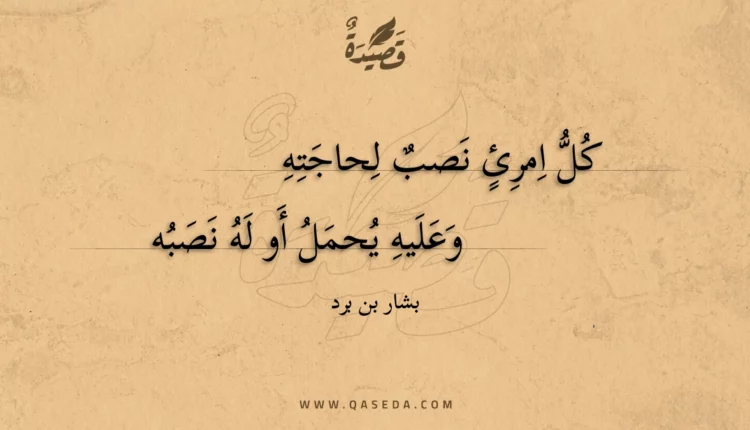 قَصِيْدَةٌ
كُلُّ اِمرِئٍ نَصبٌ لِحاجَتِهِ
وَعَلَيهِ يُحمَلُ أَو لَهُ نَصَبُه
بشار بن برد
WWW.QASEDA.COM